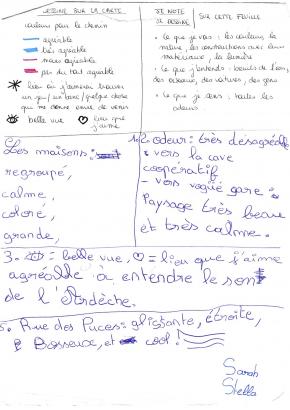 DESSINE SUR LA CARTE
couleurs pour le chemin
agréable
très agréable
moins agréable
pas du tout agréable
lieu où j'aimerais trouver
un jeu / un banc / quelque chose
qui me donne envie de venir
belle vue
lieu que
j'aime
JE NOTE
JE DESSINE
SUR CETTE FEUILLE
ce que je vois : les couleurs la
nature, les constructions avec leurs
matériaux, la lumière
ce que j'entends : bruits de l'eau,
des oiseaux, des voitures, des gens
ce que je sens : toutes les
odeurs
Les maisons :
regroupé,
calme,
coloré,
grande,
odeur : très désagréable
: vers la cave
coopératif
- vers vogüé gare :
Paysage très beau
et très calme.
3. = belle vue, ♡ = lieu que j'aime
agréable à entendre le son
de l'Ardèche.
5. Rue des Puces : glissante, étroite,
Bosseux, et cool !
Sarah
Stella